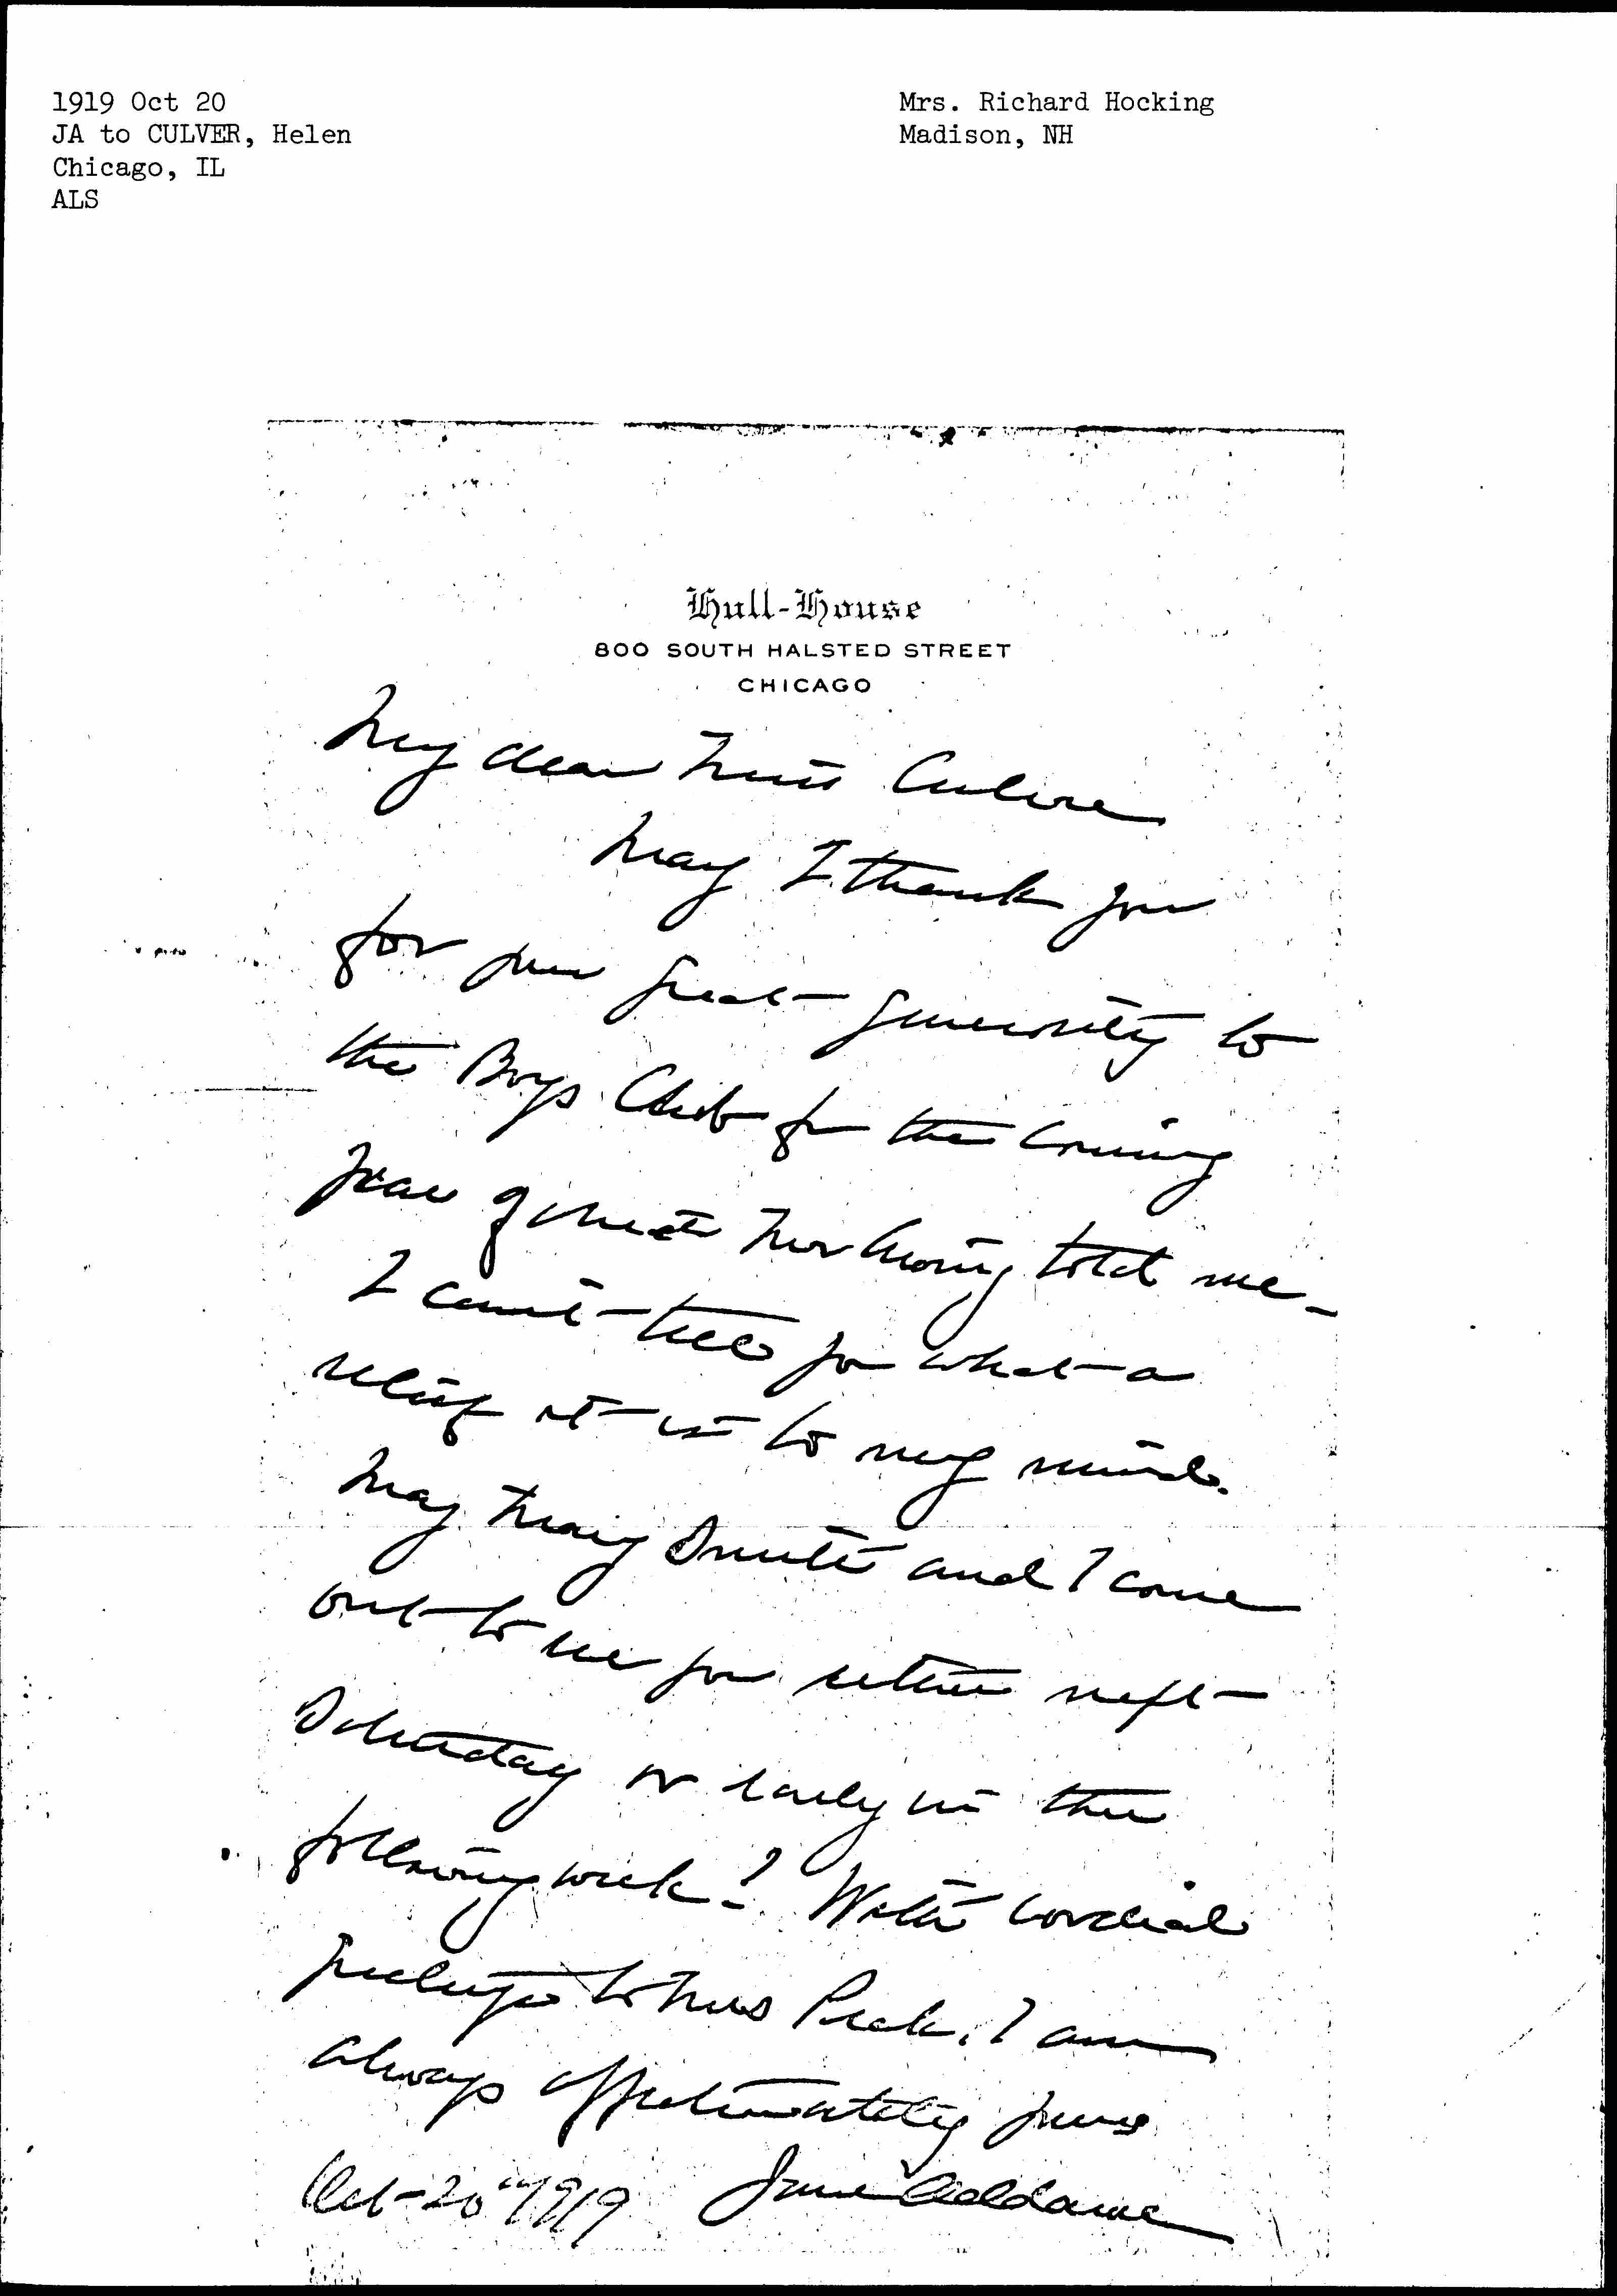 1919 Oct 20
JA to CULVER, Helen
Chicago, IL
ALS
Mrs. Richard Hocking
Madison, NH
Hull-House
800 SOUTH HALSTED STREET
CHICAGO
My dear Miss Culver
May I thank you
for your great generosity to
the Boys Club for the coming
year of which told me_
I can't tell you what a
relief it is to my mind.
May Mary Smith and I come
out to see you either next
Saturday or early in the
following week? With cordial
greetings to Miss Peck, I am
always affectionately yours
Oct 20" 1919 Jane Addams